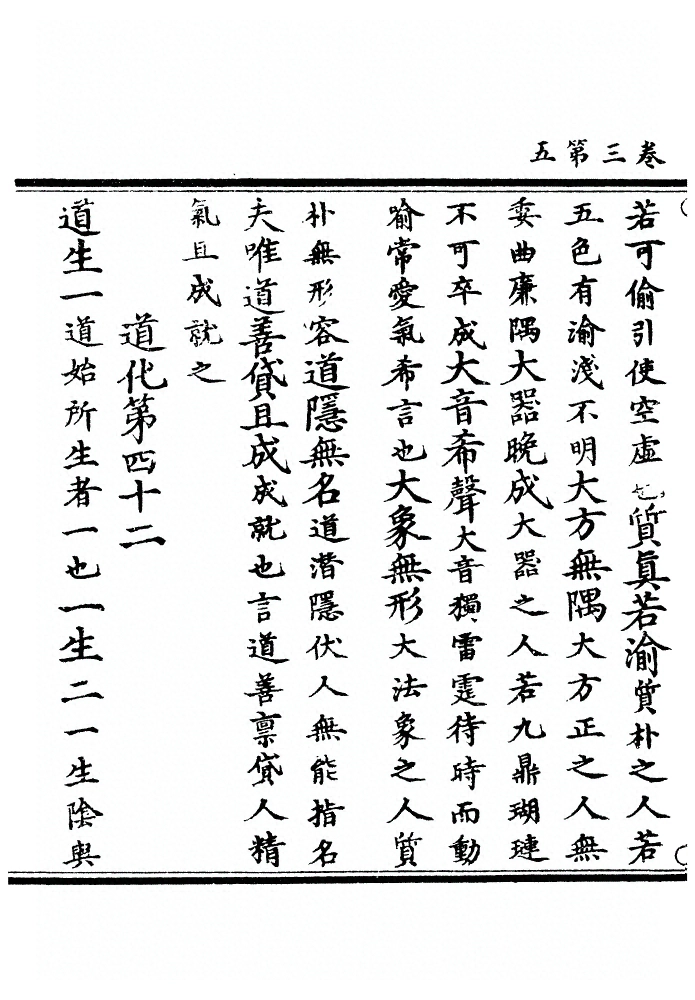 卷三第五
若可偷引使空虛也質真若渝質朴之人若
五色有渝淺不明大方無隅大方正之人無
委曲廉隅大器晚成大器之人若九鼎瑚璉
不可卒成大音希聲大音獨雷霆待時而動
喻常愛氣希言也大象無形大法象之人質
朴無形容道隱無名道潛隱伏人無能指名
夫唯道善貸且成成就也言道善禀貸人精
氣且成就之
道化第四十二
道生一道始所生者一也一生二一生陰與